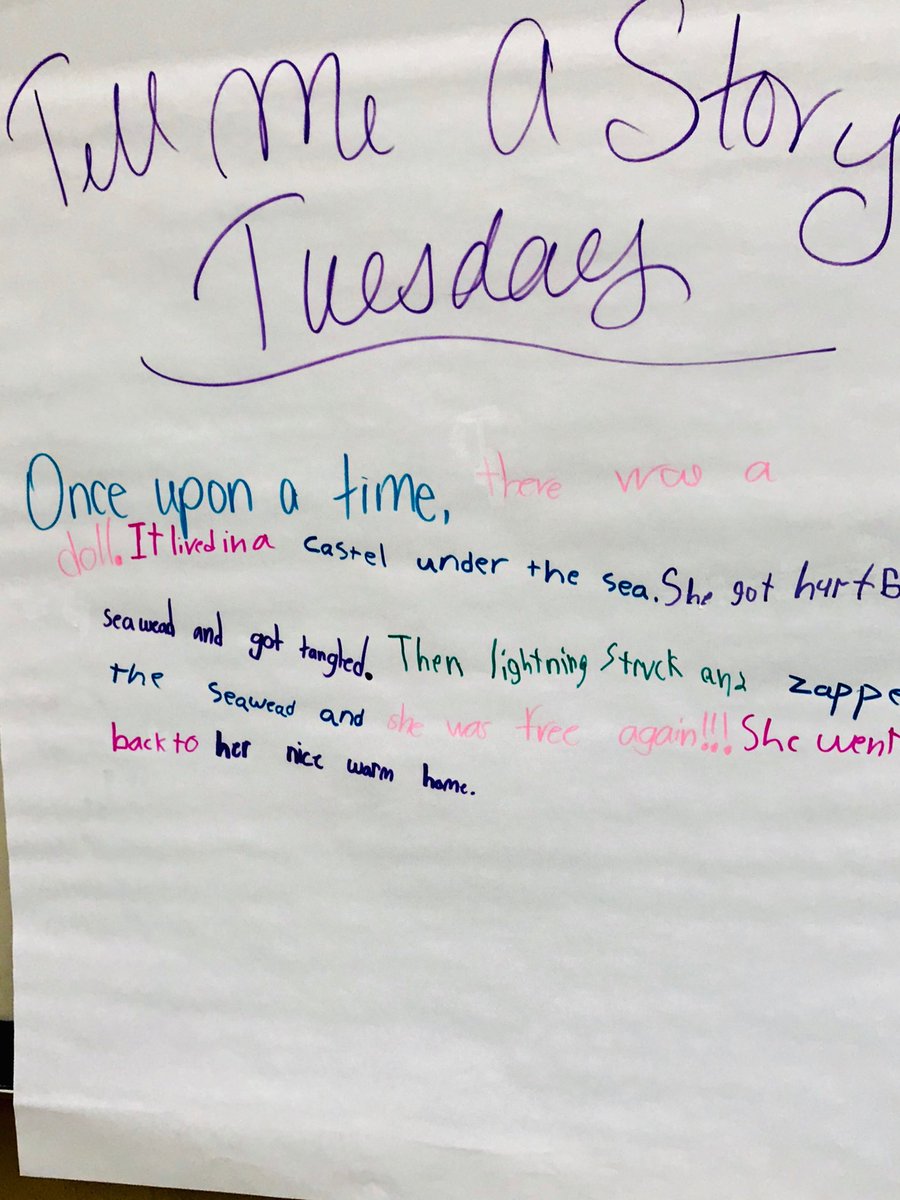 Tell Me A Story
Tuesday
Once upon a time, there was a
doll. It lived in a castel under the sea. She got hurt
seawead and got tangled. Then lightning struck and zappe
the seawead and she was free again!!! She went
back to her nice warm home.